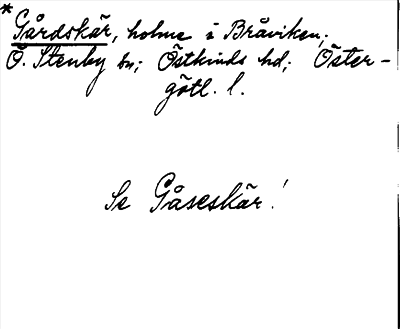 * Gårdskär, holme i Bråviken;
Ö. Stenby sn; Östkinds hd; Öster-
götl. l.
Se Gåseskär!